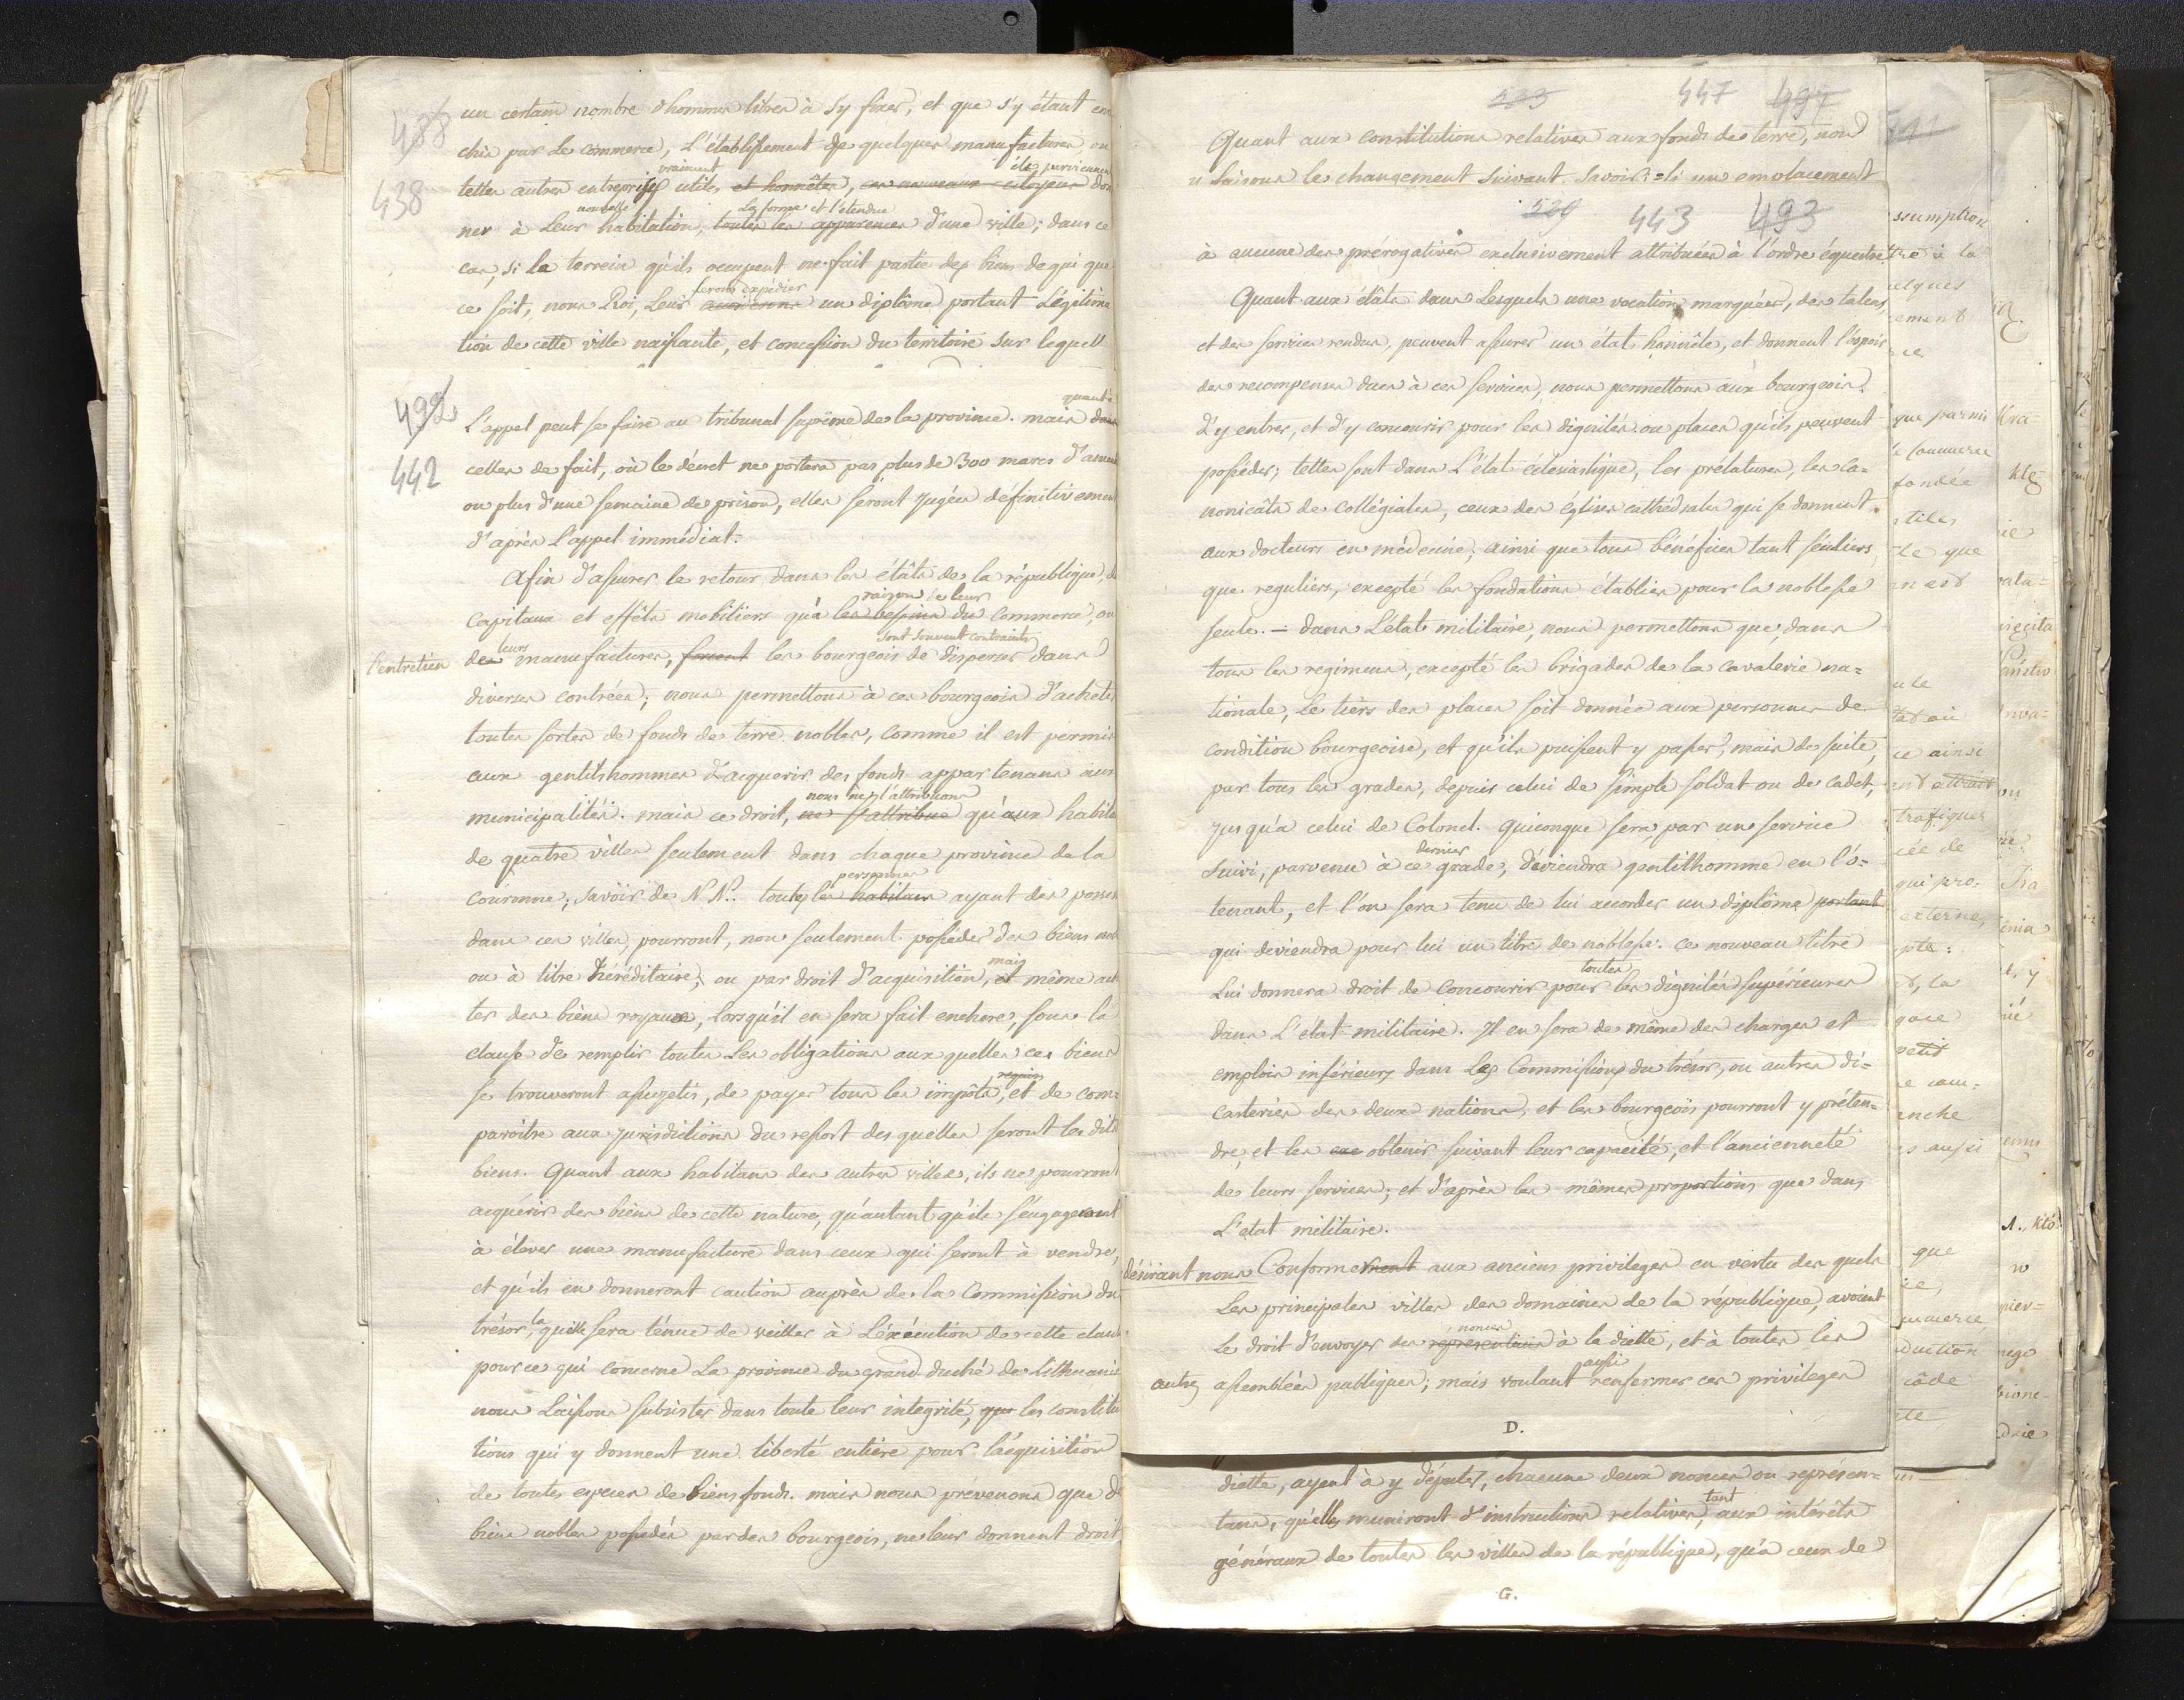 488
438
un certain nombre d'hommes libres à s'y fixer, et que s'y étant en
chis par le commerce, L'établissement de quelques manufactures, ou
telles autres entreprises vraiment utiles et honnêtes, ces nouveaux citoyens ils parviennent don
ner à Leur nouvelle habitation, toutes les apparences La forme et l'étendue d'une ville; dans ce
cas, si le terrein qu'ils occupent ne fait partie des biens de qui que
ce soit, nous Roi, Leur ferons expédier un diplôme portant Légitima
tion de cette ville naissante, et concession du territoire sur lequel
492
442
L'appel peut se faire au tribunal suprême de la province. mais dans quant à
celles de fait, où le décret ne portera pas plus de 300 marcs d'amende
ou plus d'une semaine de prison, elles seront jugées définitivement
d'après l'appel immédiat.
Afin d'assurer le retour dans les états de la république, de
capitaux et effêts mobiliers qu'à les besoins raison de leur du commerce, ou
l'entretien des leurs manufactures, forcent les bourgeois sont souvent contraints de disperser dans
diverses contrées; nous permettons à ces bourgeois d'acheter
toutes sortes de fonds de terre nobles, comme il est permis
aux gentilshommes d'acquerir des fonds appartenans aux
municipalités. mais ce droit, ne s'attribue nous ne l'attribuons qu'aux habita
de quatre villes seulement dans chaque province de la
couronne; savoir de N N.. toutes les habitans personnes ayant des posses
dans ces villes, pourront, non seulement posséder des biens nob
ou à titre héréditaire, ou par droit d'acquisition, et mais même ach
ter des biens royaux, Lorsqu'il en sera fait enchere, sous la
clause de remplir toutes Les obligations aux quelles ces biens
se trouveront assujetis, de payer tous les impôts requis, et de com=
paroitre aux jurisdictions du ressort des quelles seront les dits
biens. Quant aux habitans des autres villes, ils ne pourront
acquérir des biens de cette nature, qu'autant qu'ils s'engageront
à élever une manufacture dans ceux qui seront à vendre,
et qu'ils en donneront caution auprès de la Commission du
trésor, la quelle sera ténue de veiller à L'éxécution de cette clause
pour ce qui concerne La province du grand duché de Lithuanie
nous Laissons subsister dans toute leur integrité, que les constitu
tions qui y donnent une liberté entière pour l'acquisition
de toutes especes de biens fonds. mais nous prévenons que d
biens nobles possédés par des bourgeois, ne leur donnent droit
503 447 497
Quant aux constitutions relatives aux fonds de terre, nous
n faisons le changement suivant. Savoir:=si un emplacement
529 443 493
à aucune des prérogatives exclusivement attribuées à l'ordre équestre.
Quant aux étâts dans Lesquels une vocation marquées, des talens,
et des services rendus, peuvent assurer un état honnête, et donnent l'espoir
des recompenses dues à ces services, nous permettons aux bourgeois.
d'y entrer, et d'y concourir pour les dignités ou places qu'ils peuvent
posséder; telles sont dans L'état éclésiastique, les prélatures, les ca=
nonicâts de collégiales, ceux des églises cathédrales qui se donnent
aux docteurs en médecine; ainsi que tous bénéfices tant séculiers
que reguliers, excepté les fondations établies pour la noblesse
seule. — dans L'état militaire, nous permettons que dans
tous les regimens, excepté les brigades de la cavalerie na=
tionale, Le tiers des places soit donnée aux personnes de
condition bourgeoise, et qu'ils puissent y passer, mais de suite,
par tous les grades, depuis celui de simple soldat ou de cadet,
jusqu'à celui de Colonel. Quiconque sera, par un service
suivi, parvenu à ce dernier grade, déviendra gentilhomme en l'ô=
tenant, et l'on sera tenu de lui accorder un diplôme portant
qui deviendra pour lui un titre de noblesse. ce nouveau titre
Lui donnera droit de concourir pour toutes les dignités supérieures
dans L'état militaire. Il en sera de même des charges et
emplois inférieurs dans Les Commissions du trésor, ou autres di=
casteries des deux nations, et les bourgeois pourront y préten=
dre, et les obtenir suivant leur capacité, et l'ancienneté
de leurs services; et d'après les mêmes proportions que dans
L'etat militaire.
désirant nous Conformement aux anciens privileges en vertu des quels
Les principales villes des domaines de la république, avoient
Le droit d'envoyer des représentans nonces à la diette, et à toutes les
autres assemblées publiques; mais voulant aussi renfermer ces privileges
D.
diette, ayent à y députer, chacune deux nonces ou représen=
tans, qu'elles muniront d'instructions relatives, tant aux intérêts
généraux de toutes les villes de la république, qu'à ceux de
G.
511
ssumption
tre à la
elques
cement
que parmis
fondée
stiles
te que
ce ainsi
ent attrait
trafiquer
cée de
qui pro,
externe,
enche
s aussi
que
duction
côde